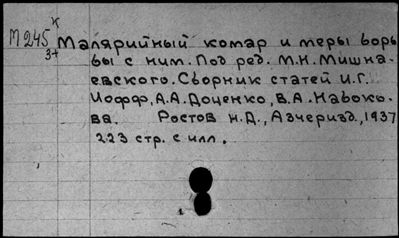 К
М245 Малярийный комар и меры борь
3+ бы с ним. Под ред. М.Н. Мишна-
евского. Сборник статей И.Г.
Иофф, А.А. Доценко, В.А. Набоко-
ва. Ростов н.Д., Азчеризд., 1937
223 стр. с илл.